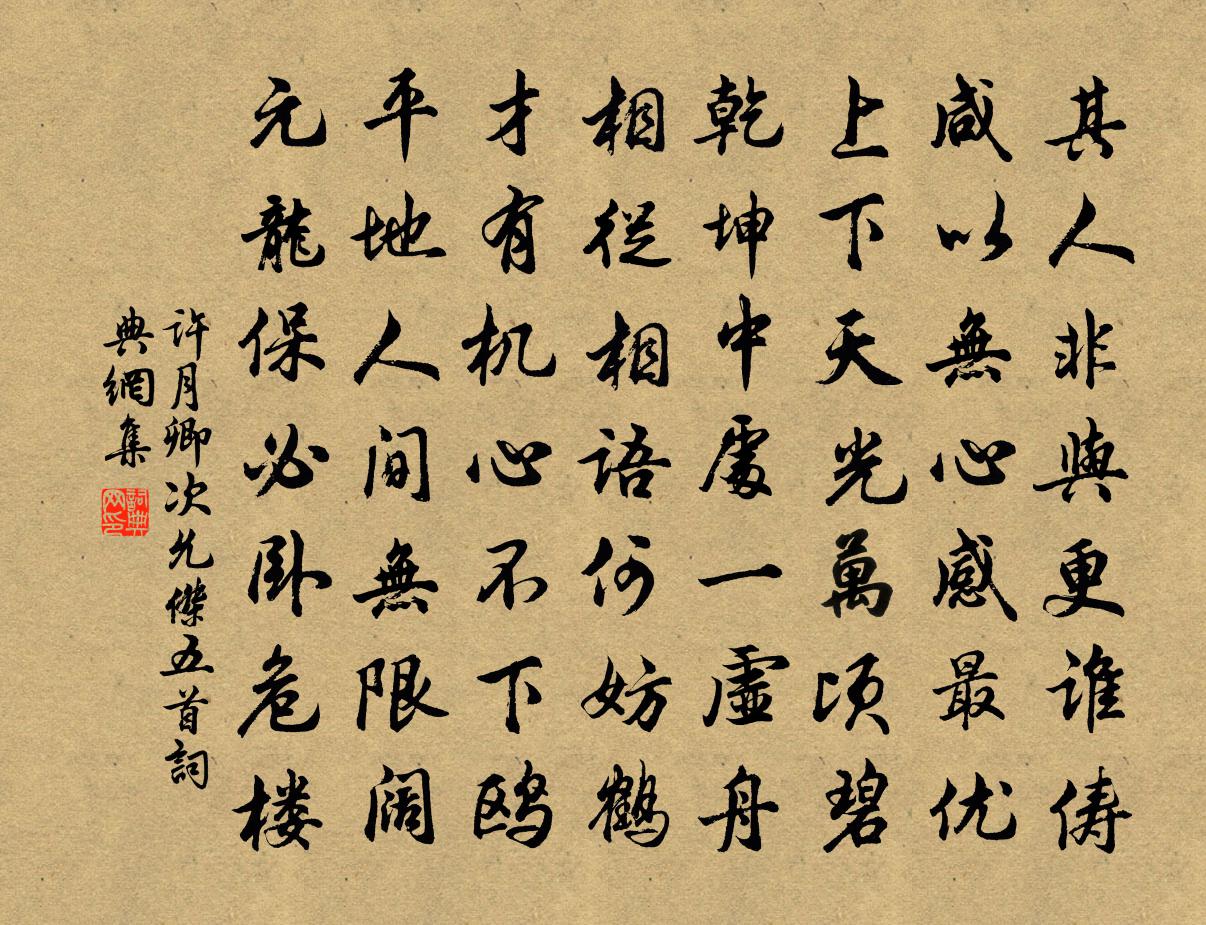 其人非與更谁俦
咸以無心感最优
上下天光萬顷碧
乾坤中處一虛舟
相從相語何妨鹤
才有机心不下鸥
平地人间無限阔
元龍保必卧危楼
許月卿次允傑五首詞
典網集
詞典网印